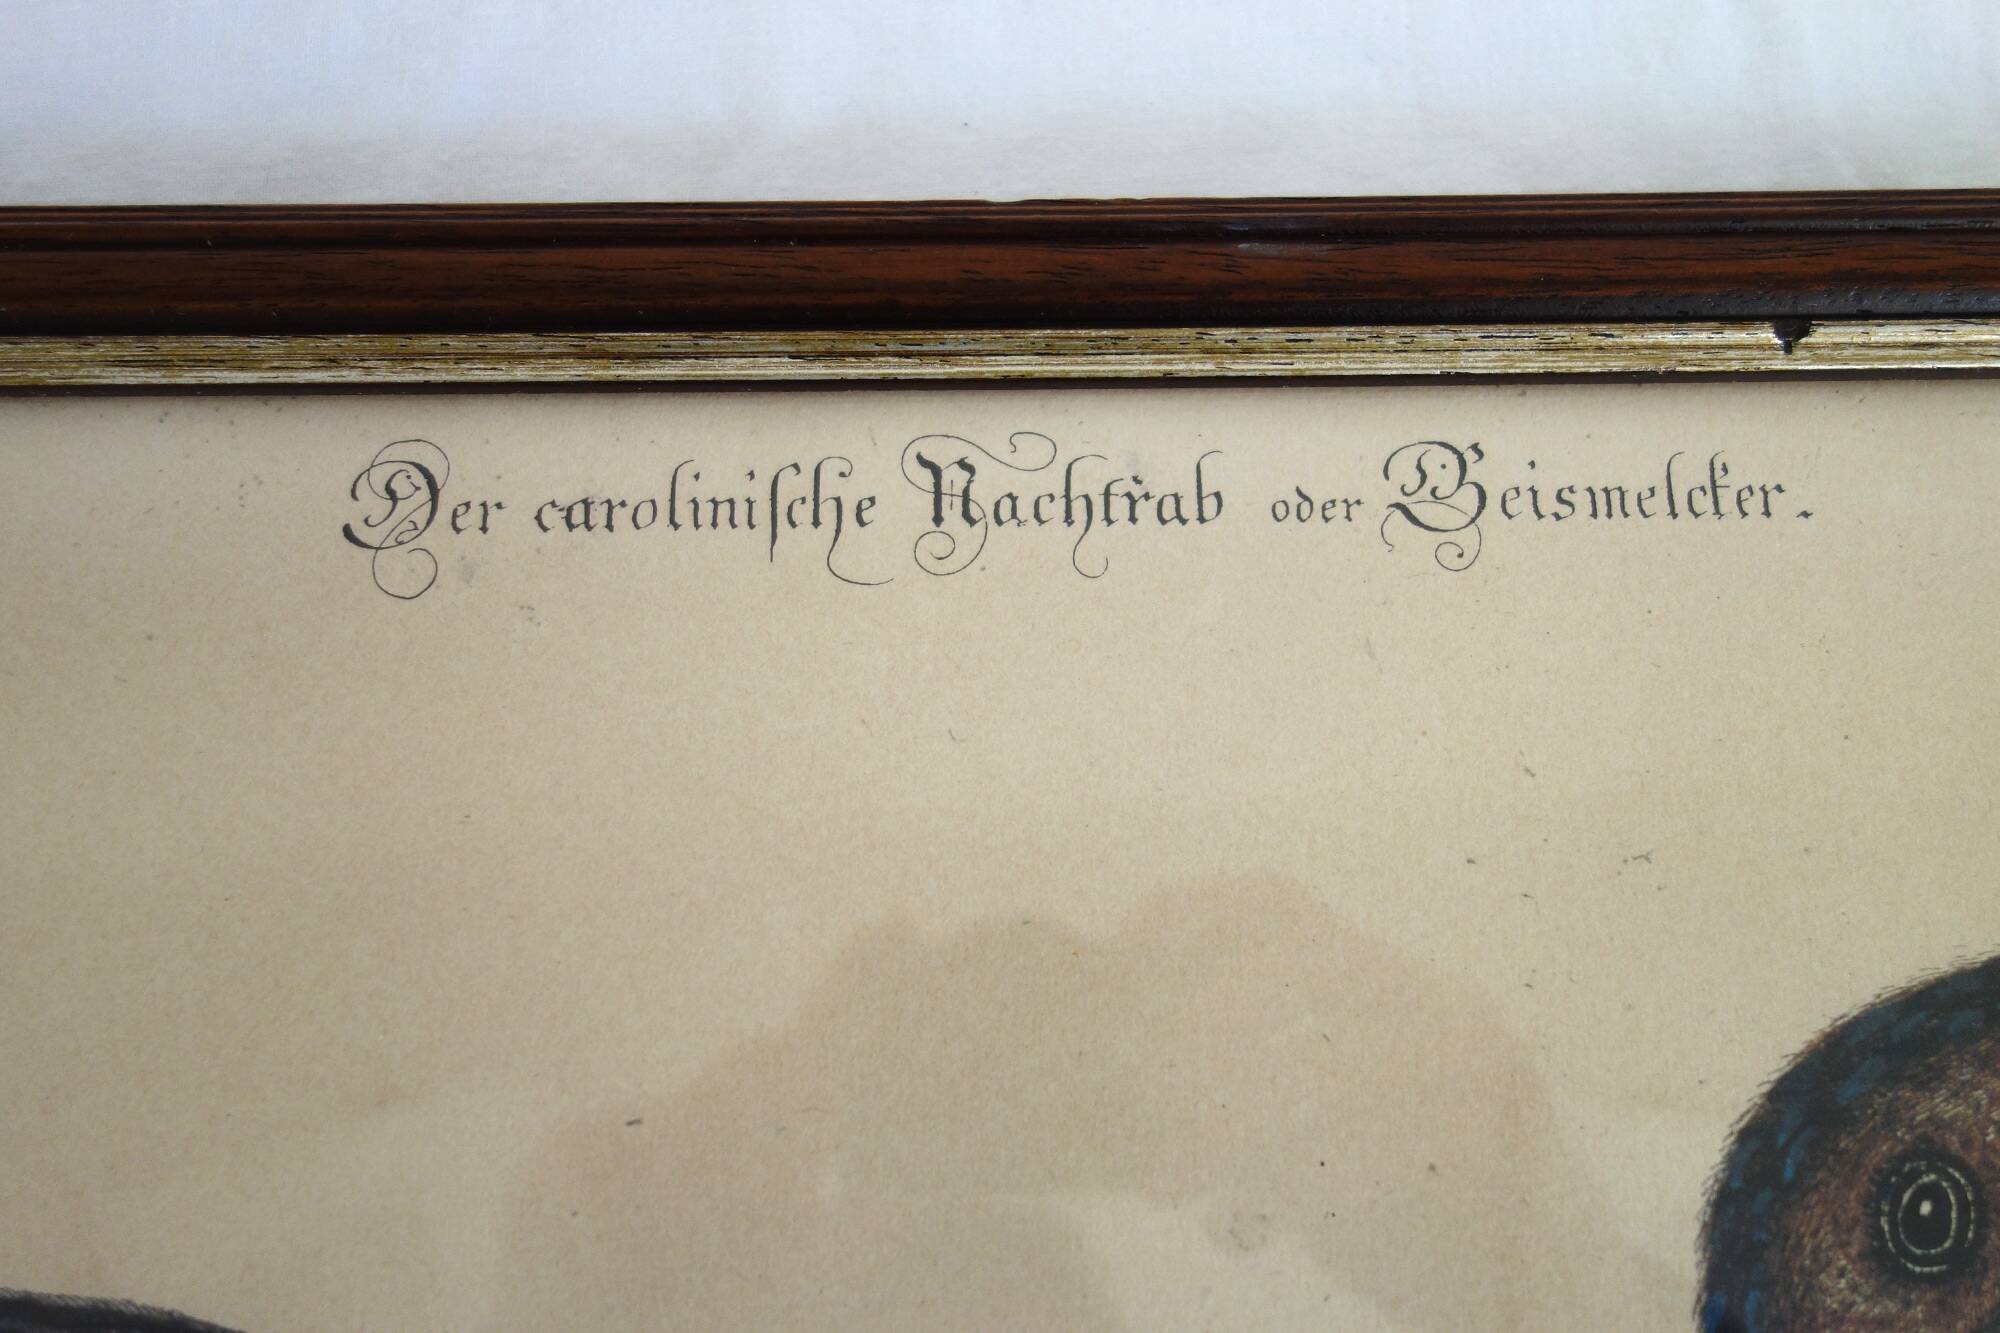 Der carolinische Nachtrab oder Geismelcker.